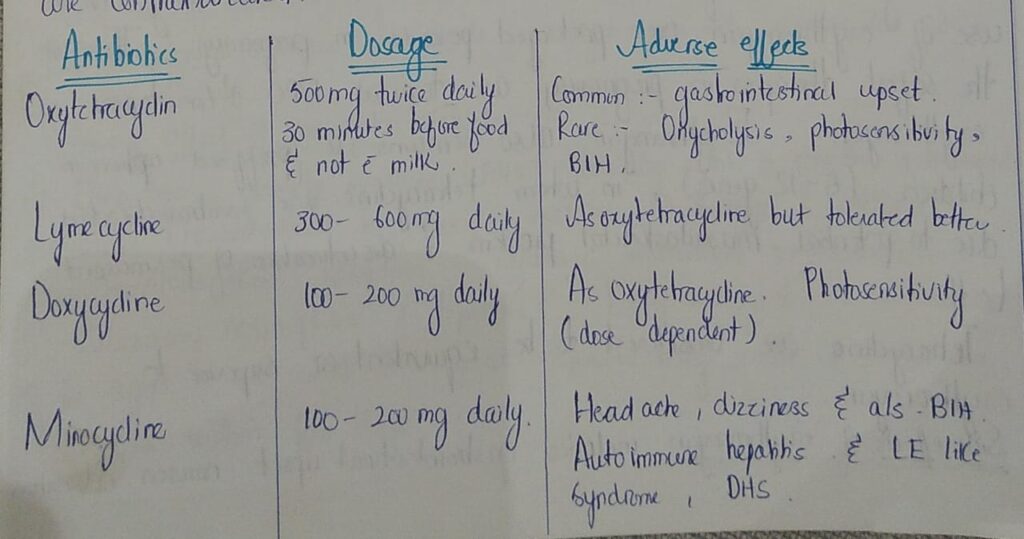 Antibiotics Dosage Adverse effects
Oxytetracyclin 500mg twice daily Common :- gastrointestinal upset.
30 minutes before food Rare :- Onycholysis, photosensitivity,
& not c̄ milk. BIH.
Lymecycline 300-600mg daily As oxytetracycline but tolerated better.
Doxycycline 100-200 mg daily As oxytetracycline. Photosensitivity
(dose dependent).
Minocycline 100-200 mg daily. Headache, dizziness & als. BIH.
Autoimmune hepatitis & LE like
syndrome, DHS.